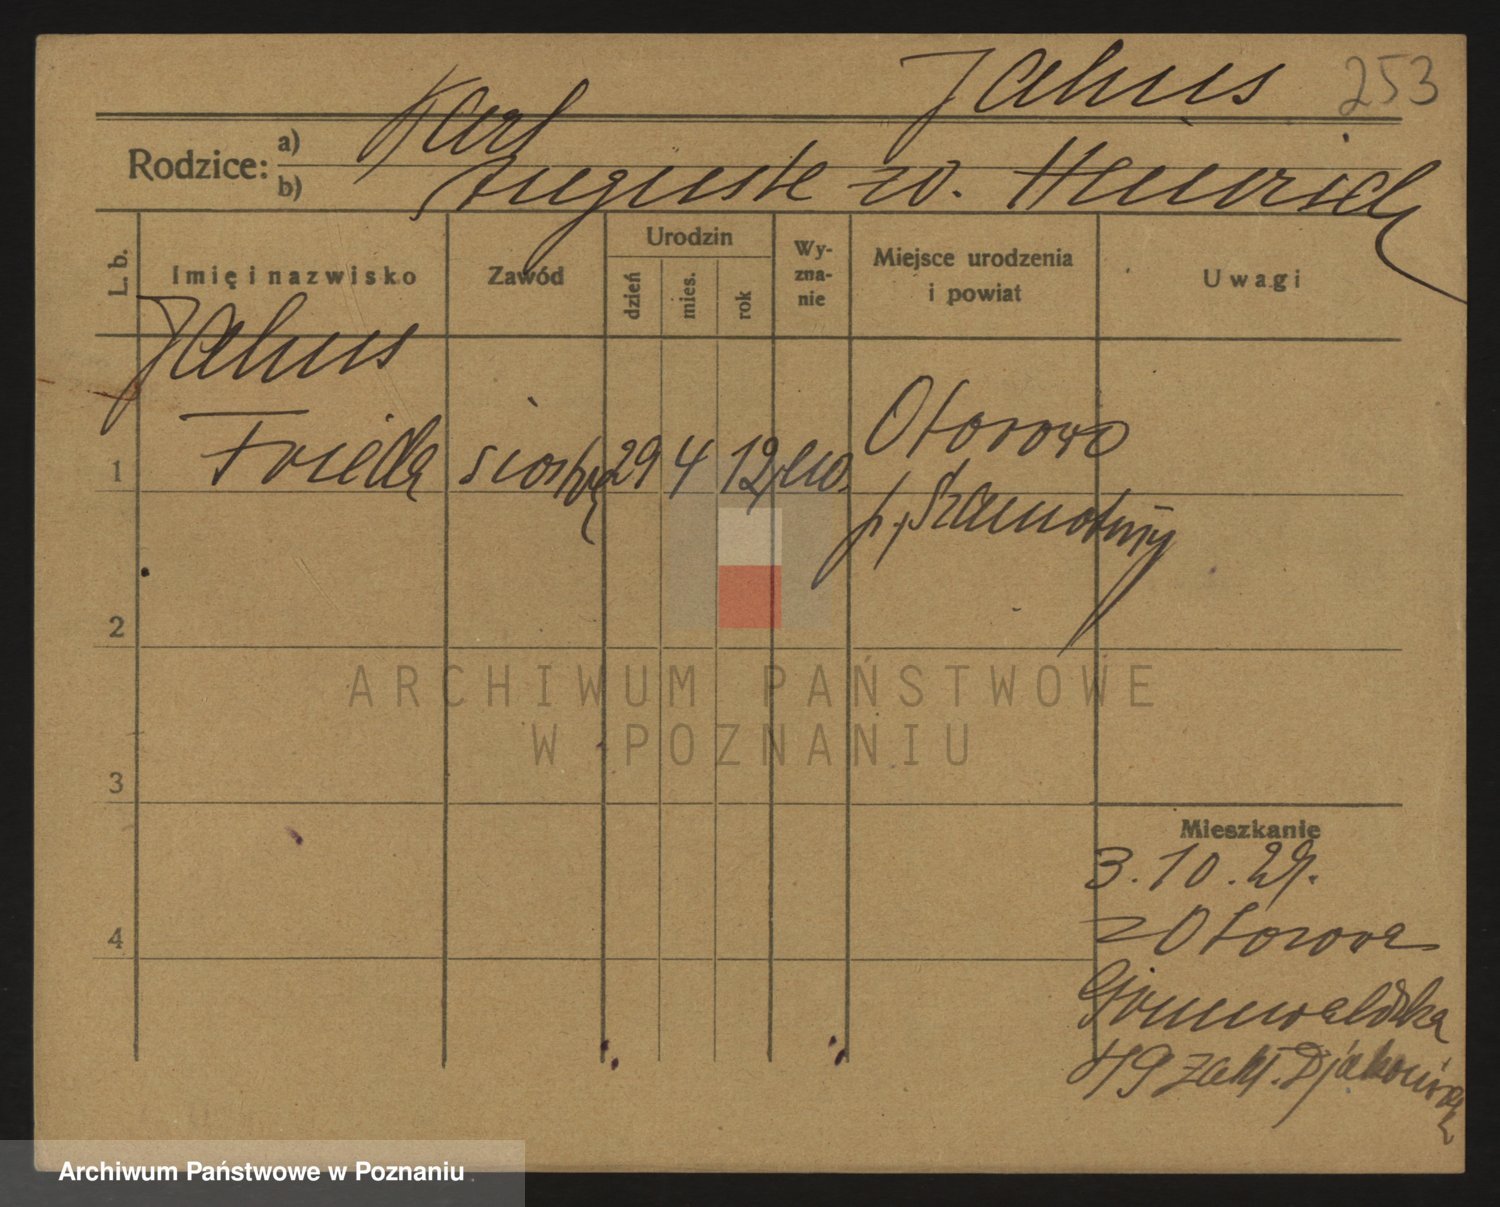 Jahns 253
Rodzice:
a) Karl
b) Auguste zd. Heinrich
L. b.
Imię i nazwisko
Zawód
Urodzin
dzień
mies.
rok
Wy-
zna-
nie
Miejsce urodzenia
i powiat
Uwagi
Jahns
1 Frieda siostra 29 4 12 Otorowo
p. Szamotuły
2
ARCHIWUM PAŃSTWOWE
W POZNANIU
3
Mieszkanie
3.10.29.
z Otorowa
4
Grunwaldzka
49 zakł.
Archiwum Państwowe w Poznaniu